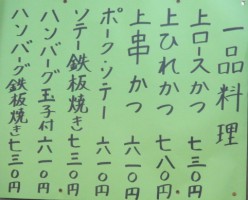 一品料理
上ロースかつ 七三〇円
上ひれかつ 七八〇円
上串かつ 六八〇円
ポークソテー 六八〇円
ソテー鉄板焼き 七三〇円
ハンバーグ玉子付 六八〇円
ハンバーグ鉄板焼き 七三〇円